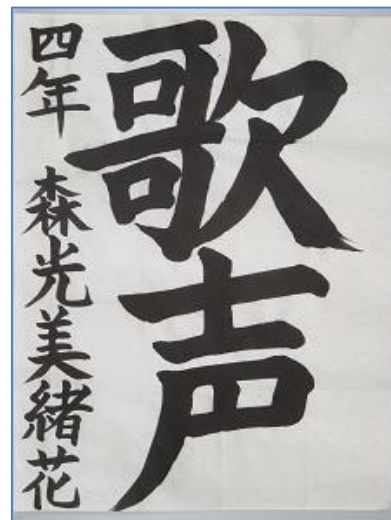 歌声
四年 森光美緒花